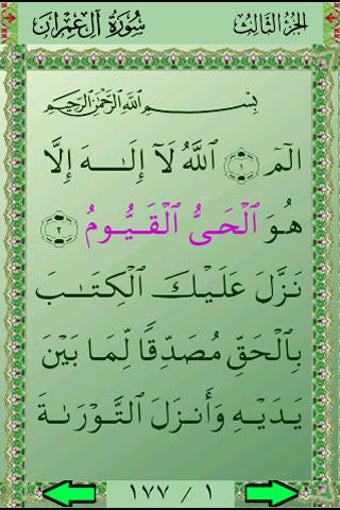 سُورَةُ آلِ عِمْرَان الجُزءُ الثَّالِث
بِسْمِ اللَّهِ الرَّحْمَٰنِ الرَّحِيمِ
الٓمٓ ١ ٱللَّهُ لَآ إِلَٰهَ إِلَّا
هُوَ ٱلْحَىُّ ٱلْقَيُّومُ ٢
نَزَّلَ عَلَيْكَ ٱلْكِتَٰبَ
بِٱلْحَقِّ مُصَدِّقًا لِّمَا بَيْنَ
يَدَيْهِ وَأَنزَلَ ٱلتَّوْرَىٰةَ
١٧٧ / ١